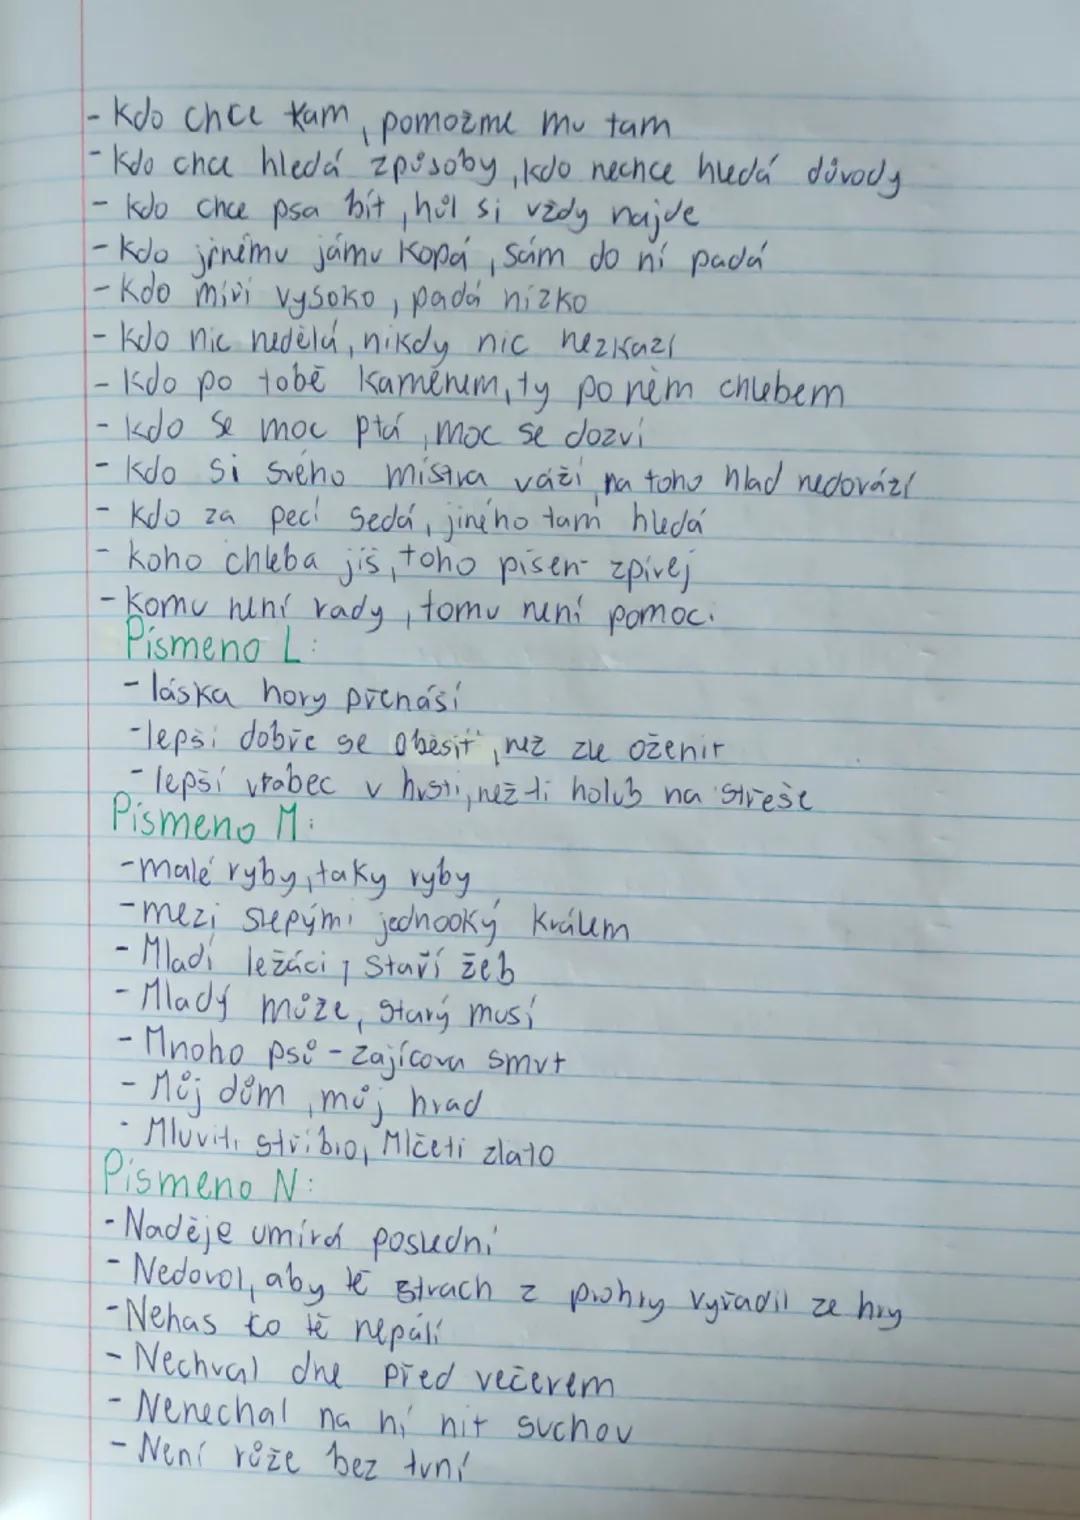 - Kdo chce kam, pomozme mu tam
- Kdo chce hledá způsoby, kdo nechce hledá důvody
- kdo chce psa bít, hůl si vždy najde
- Kdo jinému jámu Kopá, sám do ní padá
- Kdo míří vysoko, padá nízko
- Kdo nic nedělá, nikdy nic nezkazí
- Kdo po tobě Kaměnem, ty po něm chlebem
- kdo se moc ptá, moc se dozví
- Kdo si svého mistra váží, na toho hlad nedorází
- Kdo za pecí sedá, jiného tam hledá
- koho chleba jíš, toho píseň zpívej
- Komu není rady, tomu není pomoci
Písmeno L:
- láska hory přenáší
- lepší dobře se oběsit, než zle oženit
- lepší vrabec v hrsti, nežli holub na střeše
Písmeno M:
- malé ryby, taky ryby
- mezi slepými jednooký Králem
- Mladí ležáci, staří žeb
- Mladý může, starý musí
- Mnoho psů - zajícova smrt
- Můj dům, můj hrad
- Mluviti stříbro, Mlčeti zlato
Písmeno N:
- Naděje umírá poslední
- Nedovol, aby tě strach z prohry vyřadil ze hry
- Nehas co tě nepálí
- Nechval dne před večerem
- Nenechal na ní nit suchou
- Není růže bez trní